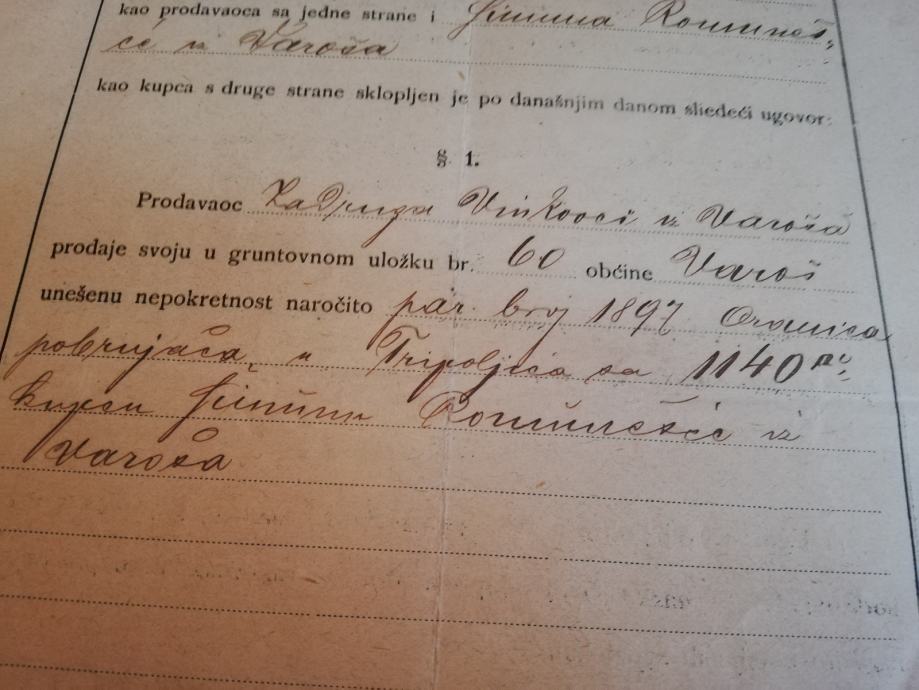 kao prodavaoca sa jedne strane i
iz Varoša
kao kupca s druge strane sklopljen je po današnjim danom sliedeći ugovor:
§ 1.
Prodavaoc Zadruga Vinkovci iz Varoša
prodaje svoju u gruntovnom uložku br. 60 obćine Varoš
unešenu nepokretnost naročito par. broj 1897 Oranica
u sa 1140
kupcu iz
Varoša